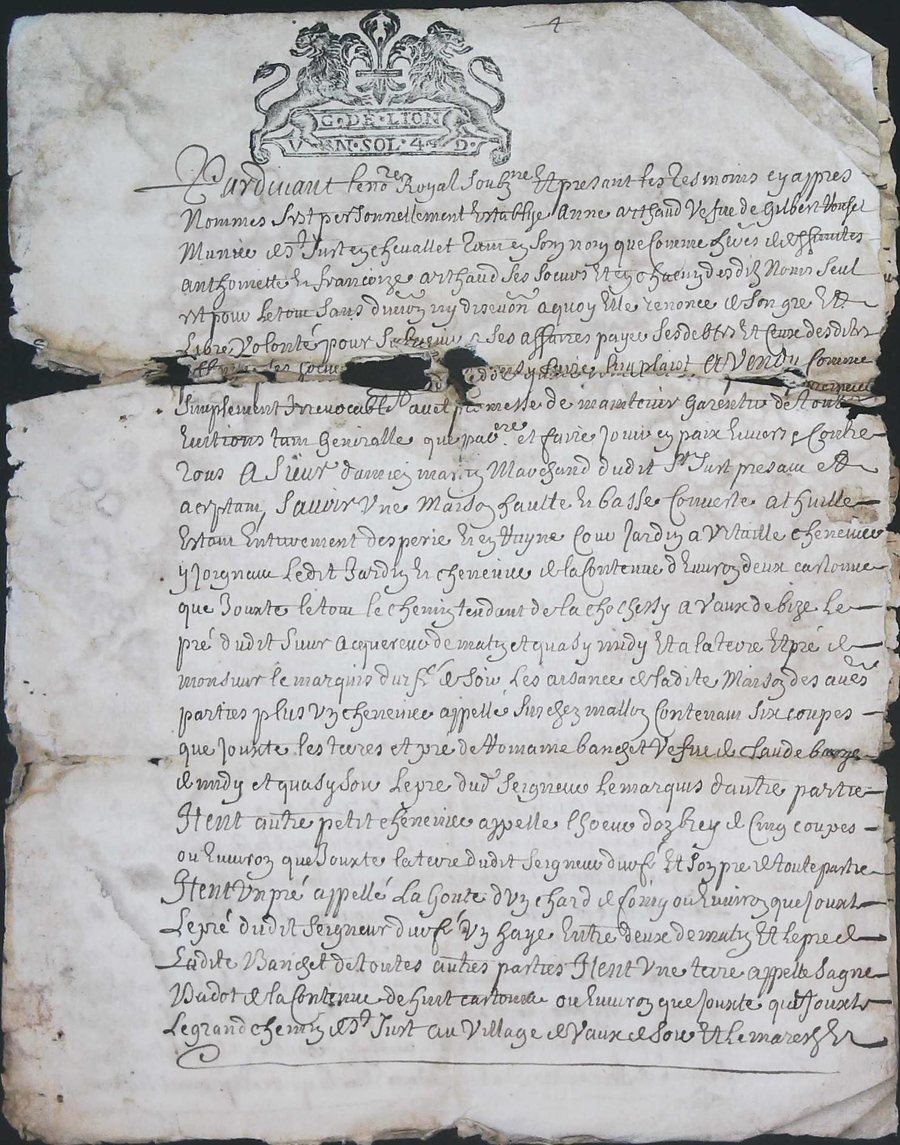 4
G. DE. LION
VN. SOL. 4. D.
Pardevant le nore Royal soubzne Et presant les tesmoins cy appres
Nommes sest personnellement establye Anne arthaud vefve de Gilbert
Munier de St Just en chevallet tant en son nom que comme de
anthoinette Et francoize arthaud ses soeurs Et en chacun desdits Noms seul
Et pour le tout sans division ny discution a quoy Elle renonce de son gre Et
Libre volonté pour ses affaires payer ses debtes Et ceux desdites
soeurs Et Vendu comme
simplement Irrevocablemt avec promesse de maintenir Garentir de toutes
Evitions tant Generalle que et faire Jouir en paix Envers Et Contre
tous A Sieur damien Marchand dudit St Just presant Et
aceptant, savoir Une Maison haulte Et basse Couverte a thuille
Estant Entierement desperie Et en Ruyne Cour Jardin chenevier
y Joigneant Ledit Jardin Et chenevier de la Contenue d'Environ deux cartonne
que Jouxte le tout le chemin tendant de la a Vaux de bize Le
pré dudit sieur acquereur de matin et quasy midy Et a la terre Et pré de
monsieur le marquis durfé de soir Les aisance de ladite Maison des aues
parties plus Un chenevier appellé sur chez mallon Contenant six coupes
que Jouxte les terres et pré de Romaine banchet vefve de claude
de midy et quasy soir Le pré dud Seigneur Le marquis d'autre partie
Item autre petit chenevier appelle de Cinq coupes
ou Environ que Jouxte la terre dudit Seigneur durfé Et son pré de toute partie
Item Un pré appellé La Goute d'Un chard de foing ou Environ que Jouxte
Le pré dudit Seigneur durfé Un haye Entre deux de matin Et le pré de
Ladite Banchet de toutes autres parties Item Une terre appelle Sagne
Badot de la Contenue de huit cartonne ou Environ que Jouxte que Jouxte
Le grand chemin de St Just au Village de Vaux de soir Et